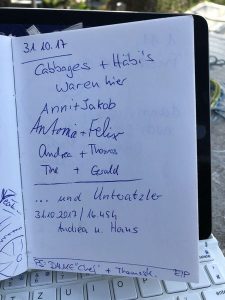 31.10.17
Cabbages + Habi's
waren hier
Anni + Jakob
Antonia + Felix
Andrea + Thomas
The + Gerald
... und Untratzler
31.10.2017 / 16 45h
Andrea u. Hans
PS: DANKE "Chef" +